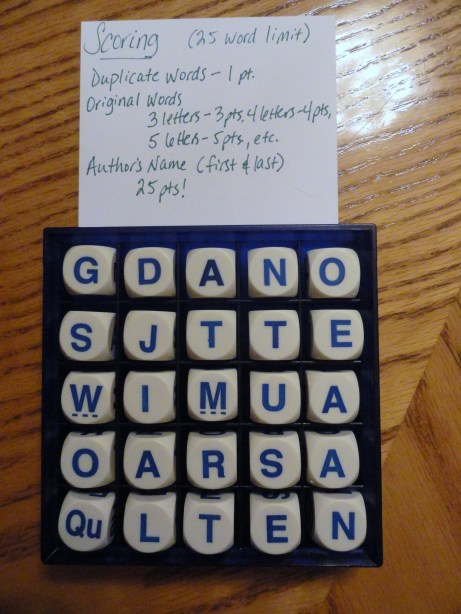 Scoring (25 word limit)
Duplicate words - 1 pt.
Original words
3 letters - 3pts, 4 letters - 4pts,
5 letters - 5pts, etc.
Author's Name (first & last)
25pts!
G D A N O
S J T T E
W I M U A
O A R S A
Qu L T E N